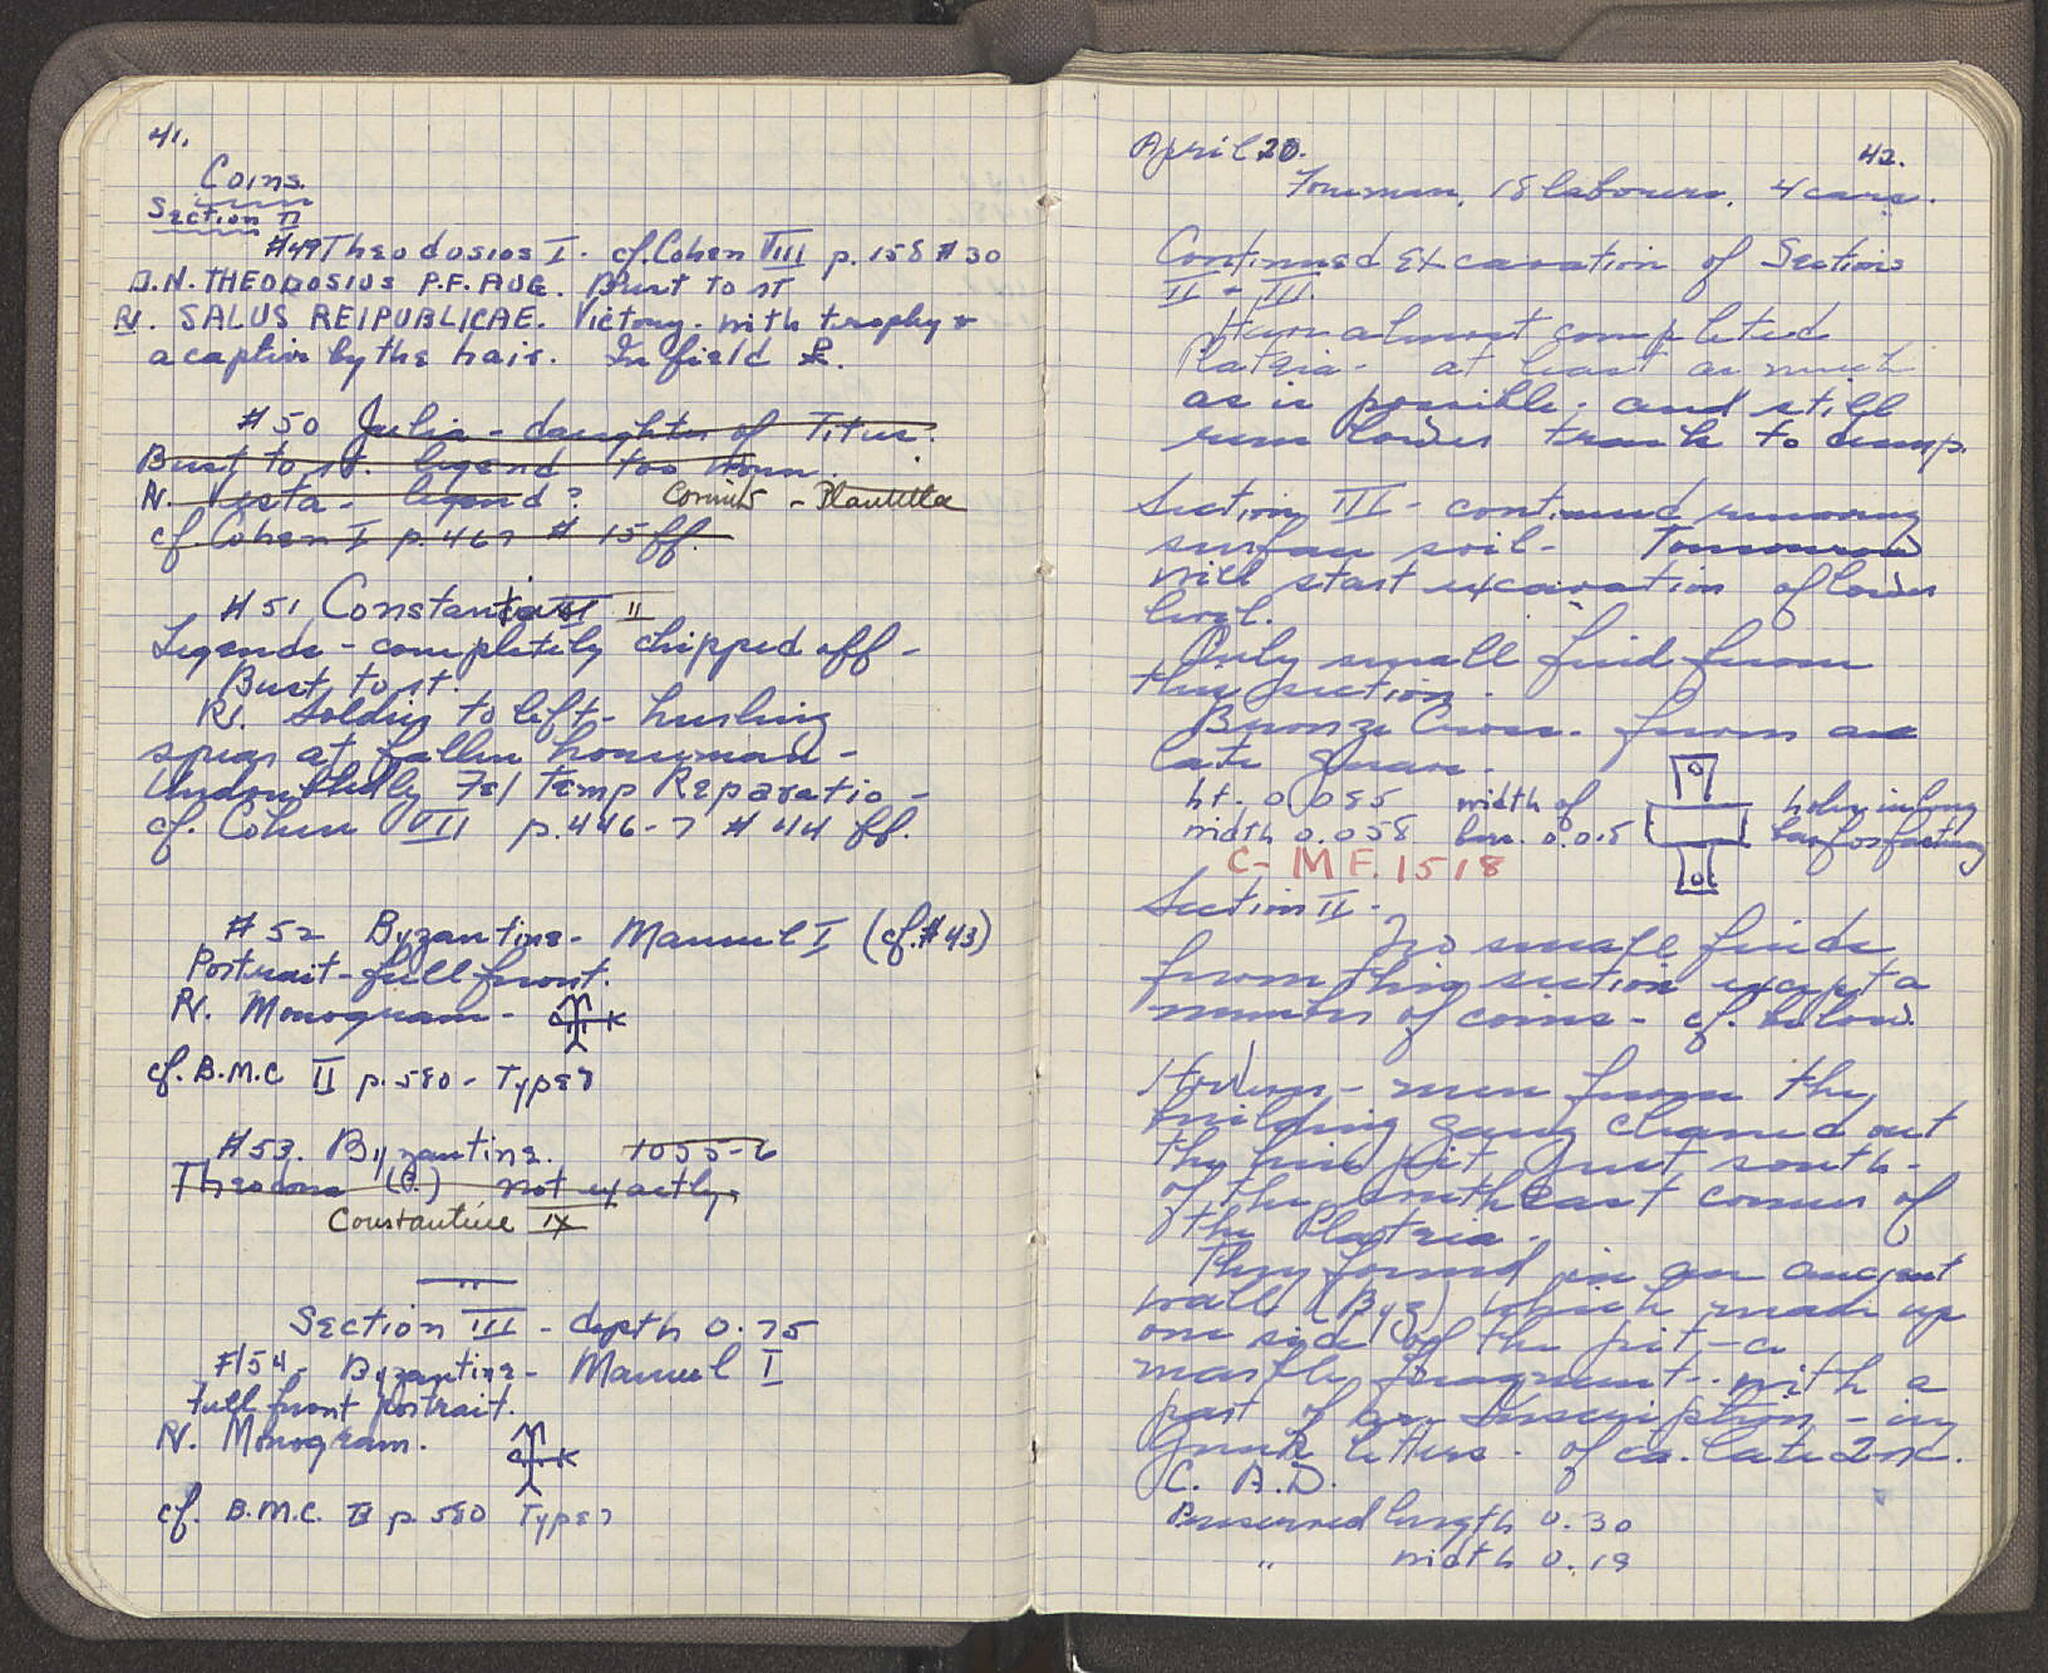 41.
Coins.
Section II
#49 Theodosios I. cf. Cohen VIII p. 158 #30
D.N. THEODOSIUS P.F. AUG. Bust to rt
Rv. SALUS REIPUBLICAE. Victory. with trophy &
a captive by the hair. In field ☧.
#50 Julia - daughter of Titus.
Bust to rt. legend too worn.
Rv. Vesta - legend? Corinth - Plautilla
cf. Cohen I p. 467 # 15 ff.
#51 Constantius II
Legends - completely chipped off -
Bust to rt.
Rv. Soldier to left - hurling
spear at fallen horseman -
Undoubtedly Fel Temp Reparatio -
cf. Cohen VII p. 446-7 # 44 ff.
#52 Byzantine - Manuel I (cf. #43)
Portrait - full front.
Rv. Monogram -
cf. B.M.C II p. 580 - Type 7
#53. Byzantine. 1055-6
Theodora (?.) not exactly.
Constantine IX
Section III - depth 0.75
#54 - Byzantine - Manuel I
full front portrait.
Rv. Monogram.
cf. B.M.C. II p. 580 Type 7
April 20. 42.
Foreman, 18 laborers, 4 cars.
Continued Excavation of Sections
II - III.
Have almost completed
Plateia - at least as much
as is possible - and still
run lower track to dump.
Section III - continued removing
surface soil - Tomorrow
will start excavation of lower
level.
Only small find from
this section -
Bronze Cross. from
late grave.
ht. 0.085 width of holes in long
width 0.058 bar. 0.015 bar for fastening
C- MF. 1518
Section II -
No small finds
from this section except a
number of coins - cf. below.
However - men from the
building gang cleaned out
the lime pit just south -
of the southeast corner of
the Plateia.
They found in an ancient
wall (Byz) which made up
one side of the pit - a
marble fragment - with a
part of an Inscription - in
Greek letters - of ca. late 2nd.
C. A.D.
Preserved length 0.30
" width 0.19